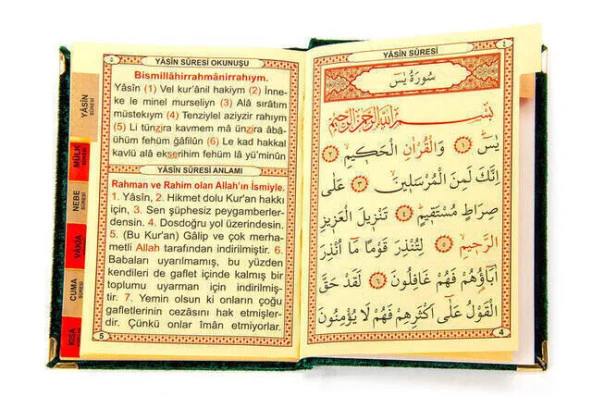 YÂSİN SÛRESİ
سُورَةُ يٰسٓ
بِسْمِ اللّٰهِ الرَّحْمٰنِ الرَّحِيمِ
يٰسٓ ﴿١﴾ وَالْقُرْاٰنِ الْحَكِيمِ ﴿٢﴾
اِنَّكَ لَمِنَ الْمُرْسَلِينَ ﴿٣﴾ عَلٰى
صِرَاطٍ مُسْتَقِيمٍ ﴿٤﴾ تَنْزِيلَ الْعَزِيزِ
الرَّحِيمِ ﴿٥﴾ لِتُنْذِرَ قَوْمًا مَٓا اُنْذِرَ
اٰبَٓاؤُهُمْ فَهُمْ غَافِلُونَ ﴿٦﴾ لَقَدْ حَقَّ
الْقَوْلُ عَلٰٓى اَكْثَرِهِمْ فَهُمْ لَا يُؤْمِنُونَ
4
YÂSİN SÛRESİ OKUNUŞU
Bismillâhirrahmânirrahıym.
Yâsîn (1) Vel kur'ânil hakiym (2) İnne-
ke le minel murseliyn (3) Alâ sırâtım
müstekıym (4) Tenziylel aziyzir rahıym
(5) Li tünzira kavmem mâ ünzira âbâ-
ühüm fehüm ğâfilûn (6) Le kad hakkal
kavlü alâ ekserihim fehüm lâ yü'minûn
YÂSİN SÛRESİ ANLAMI
Rahman ve Rahim olan Allah'ın İsmiyle.
1. Yâsîn, 2. Hikmet dolu Kur'an hakkı
için, 3. Sen şüphesiz peygamberler-
densin. 4. Dosdoğru yol üzerindesin.
5. (Bu Kur'an) Gâlip ve çok merha-
metli Allah tarafından indirilmiştir. 6.
Babaları uyarılmamış, bu yüzden
kendileri de gaflet içinde kalmış bir
toplumu uyarman için indirilmiş-
tir. 7. Yemin olsun ki onların çoğu
gafletlerinin cezasını hak etmişler-
dir. Çünkü onlar îmân etmiyorlar.
5
YÂSİN
SÛRESİ
MÜLK
NEBE
SÛRESİ
VÂKIA
CUMA
SÛRESİ
KISA